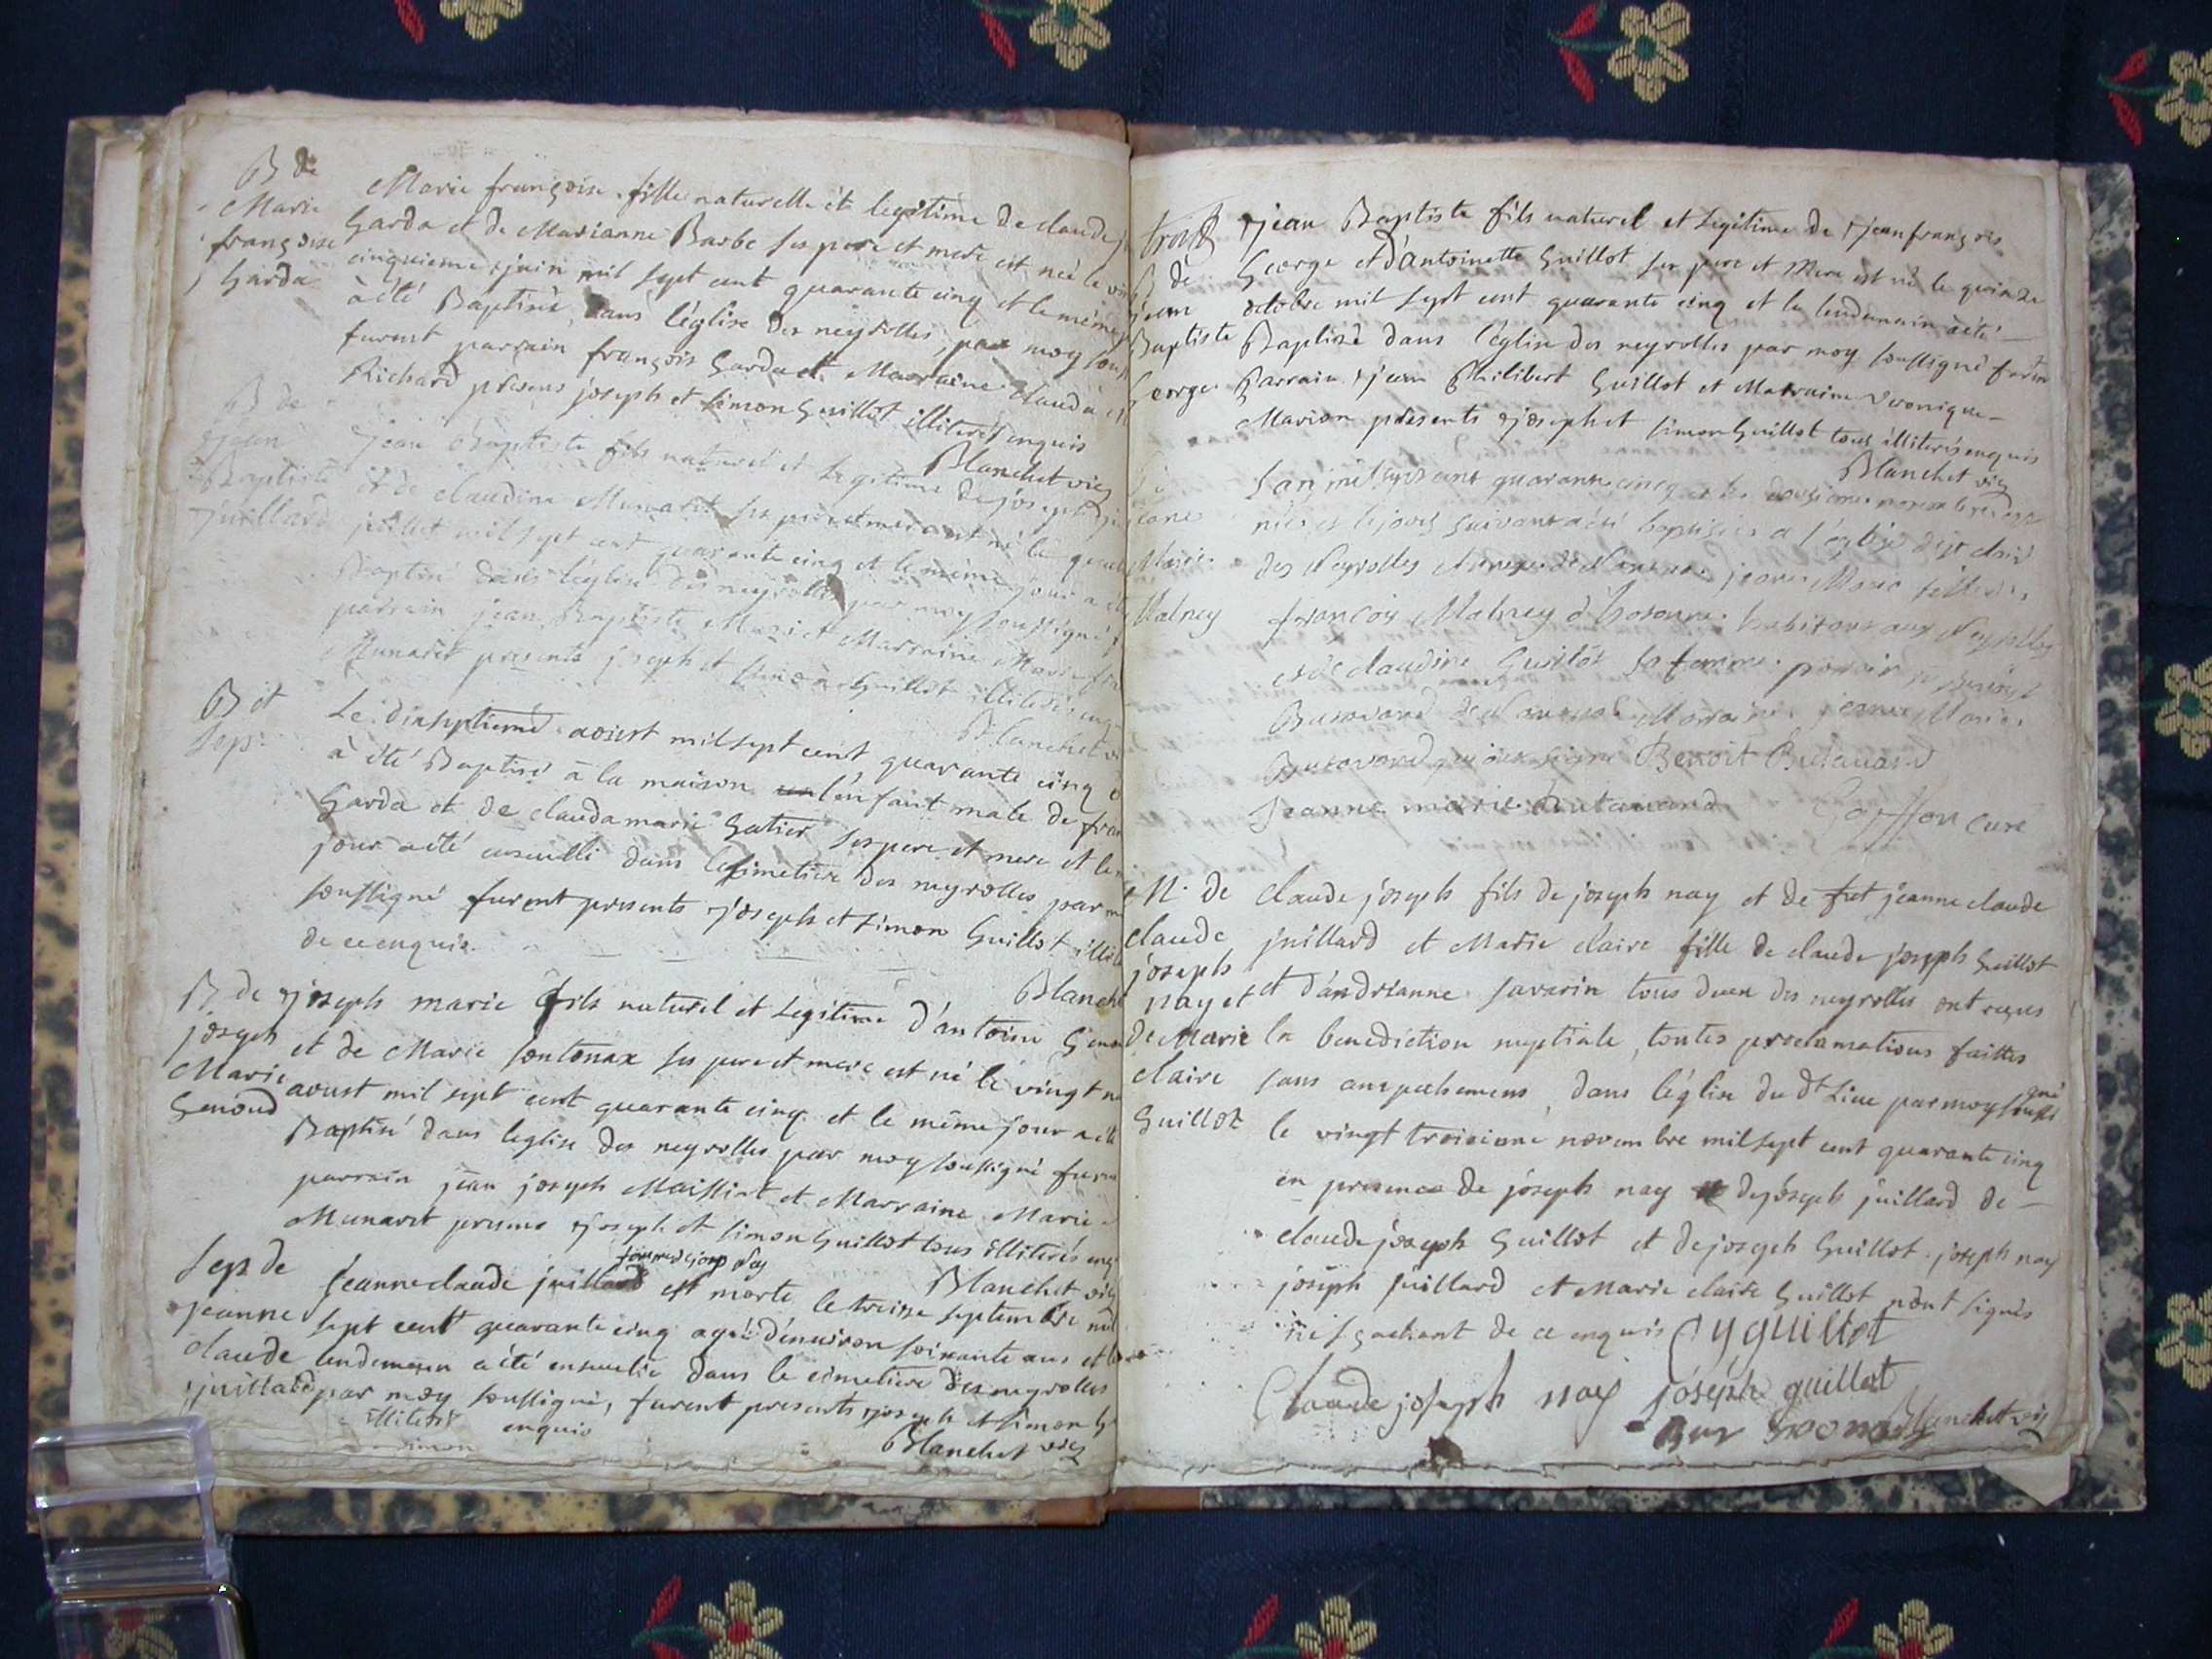 B de
Marie
françoise
Garda
Marie françoise fille naturelle et legitime de claude
Garda et de Marianne Barbe ses pere et mere est neé le
cinquieme juin mil sept cent quarante cinq et le même
à été Baptiseé dans l'église des neyrolles, par moy
furent parrain françois Garda et Marraine clauda
Richard présens joseph et simon Guillot illiterés enquis
Blanchet vic
B de
jean
Baptiste
juillard
jean Baptiste fils naturel et Legitime de joseph
et de claudine Munaret ses pere et mere est né le
juillet mil sept cent quarante cinq et le même jour a
Baptisé dans l'église des neyrolles par moy soussigné
parrain jean Baptiste et Marraine Marie
Munaret presents joseph et simon Guillot illiterés
Blanchet
B et
Sep:
Le dixseptiemé aoust mil sept cent quarante cinq
à été Baptisé à la maison l'enfant male de
Garda et de clauda marie Gatier ses pere et mere et le
jour a été enseuelli dans le simetiere des neyrolles par
soussigné furent presents joseph et simon Guillot
de ce enquis.
Blanche
B de
joseph
Marie
Genoud
joseph marie fils naturel et Legitime d'antoine
et de Marie sontonax ses pere et mere est né le vingt
aoust mil sept cent quarante cinq et le même jour a été
Baptisé dans leglise des neyrolles par moy soussigné
parrain jean joseph Maissiat et Marraine Marie
Munaret presens joseph et simon Guillot tous illiterés
Blanchet vic
Sep. de
jeanne
claude
juillard
femme de josep Nay
jeanne claude juillard est morte le treize septembre mil
sept cent quarante cinq ageé d'enuiron soixante ans et le
lendemain a été enseuelie dans le cimetiere des neyrolles
par moy soussigné, furent presents joseph et simon
illiterés enquis
Blanchet vic
B de
jean
Baptiste
George
jean Baptiste fils naturel et Legitime de jean françois
George et d'antoinette Guillot ses pere et Mere est né le quinze
octobre mil sept cent quarante cinq et le lendemain à été
Baptisé dans l'église des neyrolles par moy soussigné
Parrain jean Philibert Guillot et Marraine Veronique
Marion présents joseph et simon Guillot tous illiterés enquis
Blanchet vic
Jeane
Marie
Malney
Lan mil sept cent quarante cinq et le
née et le jour suivant a été baptisée a l'église
des Neyrolles annexe de Nantua jeane Marie fille de
françois Malney habitant aux Neyrolles
et de claudine Guillot sa femme. parrain
Butavand de Nantua Marraine jeane Marie
Butavand qui ont signé Benoit Butavand
Jeanne marie Butavand
Curé
M. de
claude
joseph
nay et
de Marie
claire
Guillot
claude joseph fils de joseph nay et de jeanne claude
juillard et Marie claire fille de claude joseph Guillot
et d'andrianne savarin tous deux des neyrolles ont reçus
la benediction nuptiale, toutes proclamations faittes
sans anpechemens, dans l'église du dt Lieu par moy soussigné
le vingt troisieme novembre mil sept cent quarante cinq
en presence de joseph nay de joseph juillard de
claude joseph Guillot et de joseph Guillot. joseph nay
joseph juillard et Marie claire Guillot n'ont signés
ne sçachant de ce enquis CJ guillot
Claude joseph nay joseph guillot
Blanchet vic